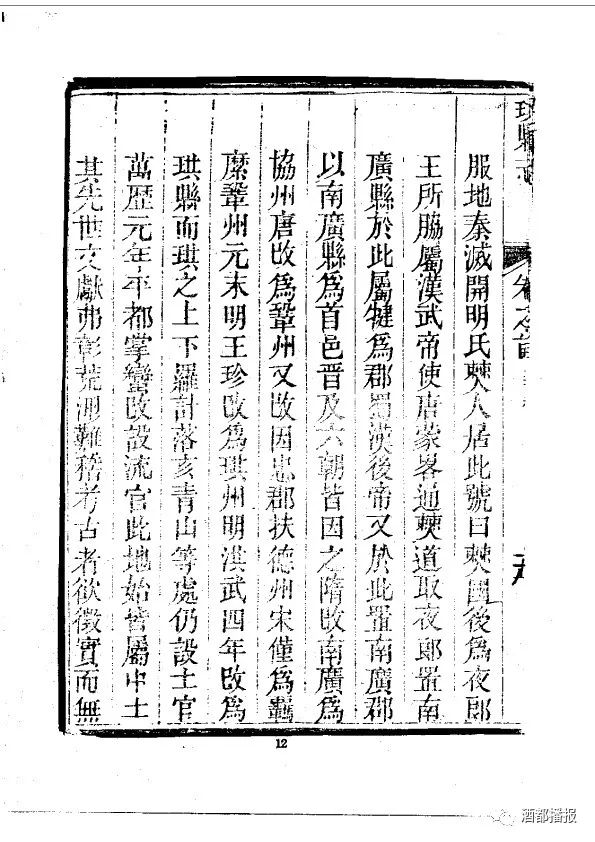 珙縣志
卷之首
服地秦滅開明氏僰人居此號曰僰國後為夜郎
王所脇屬漢武帝使唐蒙畧通僰道取夜郎置南
廣縣於此屬犍為郡蜀漢後帝又於此置南廣郡
以南廣縣為首邑晋及六朝皆因之隋改南廣為
協州唐改為鞏州又改因忠郡扶德州宋僅為羈
縻鞏州元末明玉珍改為珙州明洪武四年改為
珙縣而珙之上下羅計落亥青山等處仍設土官
萬歷元年平都掌蠻改設流官此地始皆屬中土
其先世文獻弗彰荒渺難稽考古者欲徵實而無
12
酒都播报